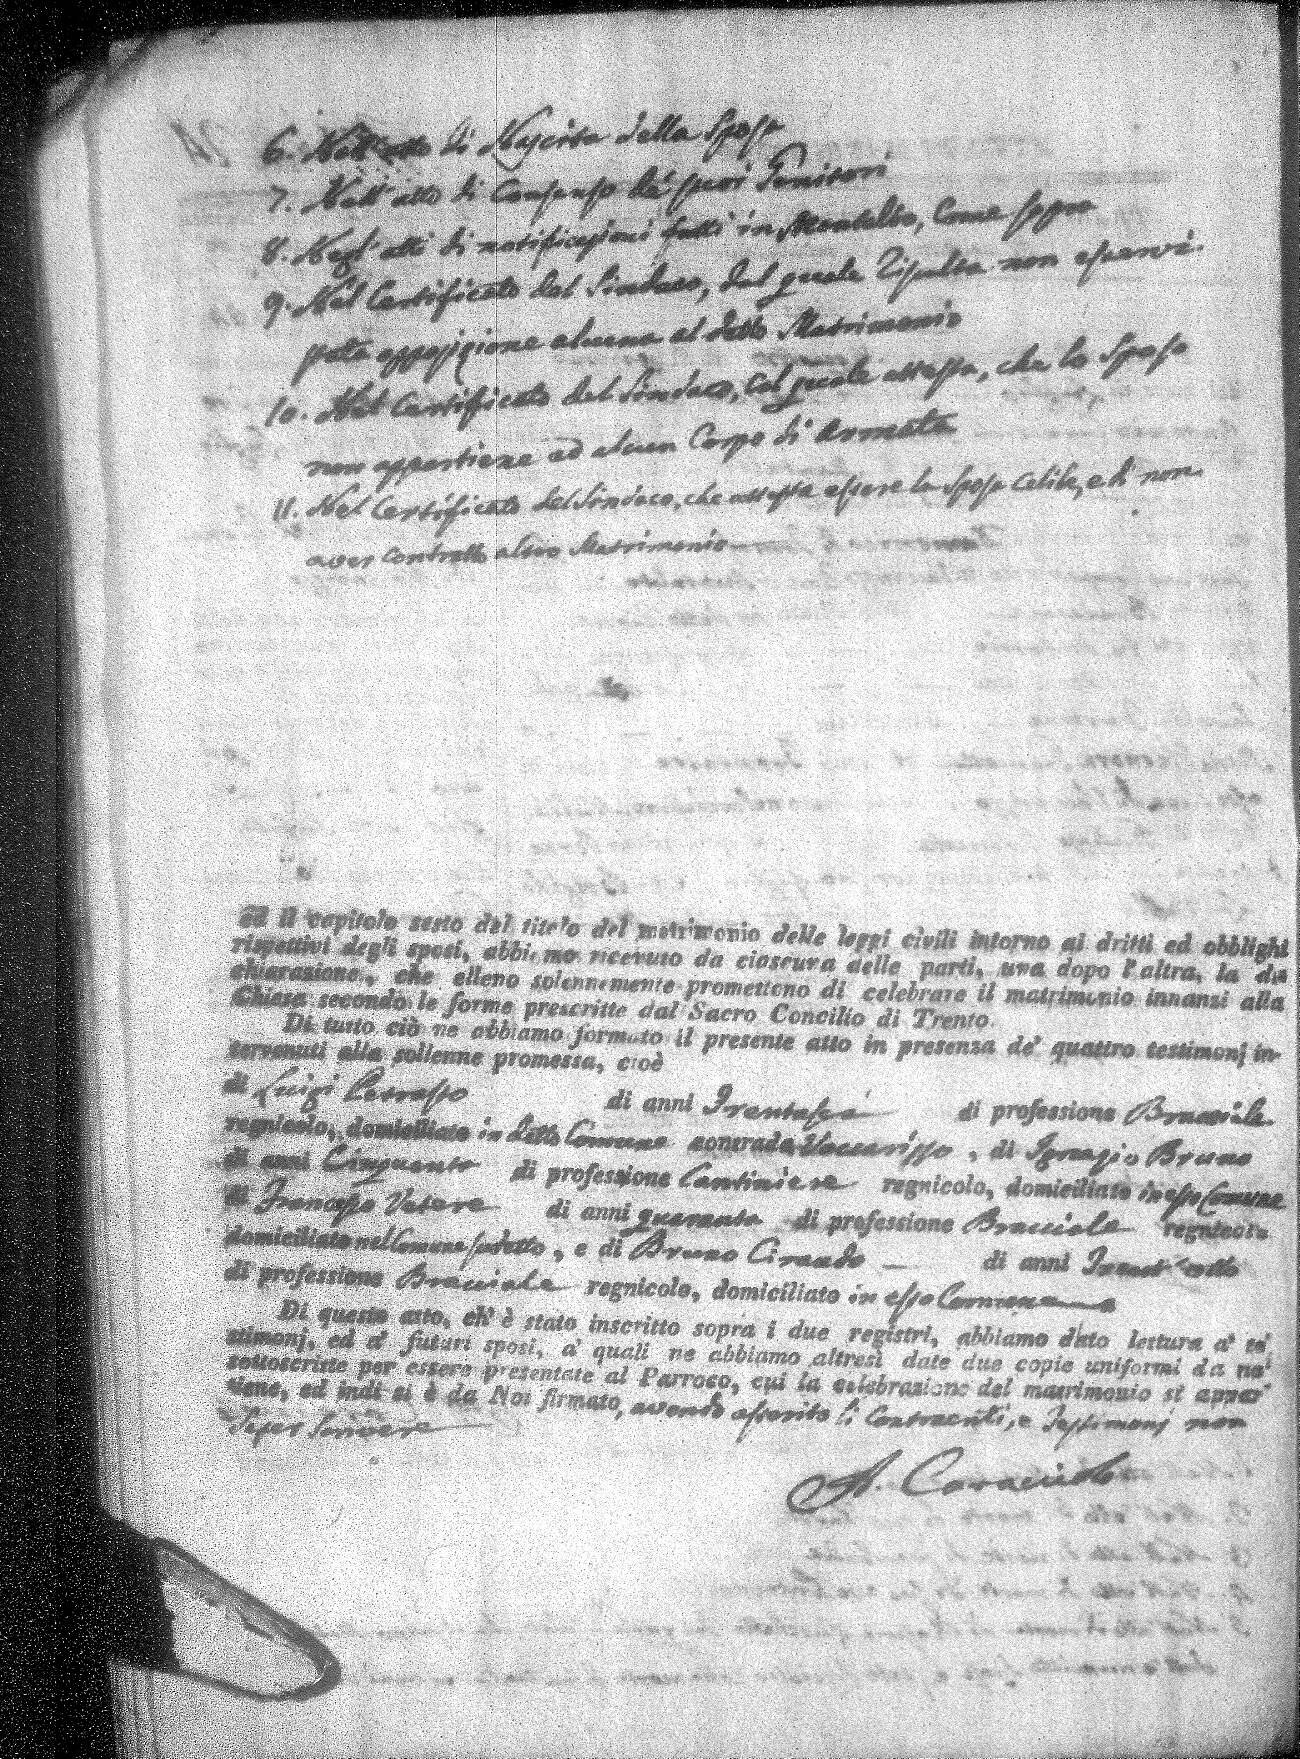 6. Nell' atto di Nascita della Sposa
7. Nell' atto di Consenso de' suoi Genitori
8. Negl' atti di notificazioni fatti in Montalto, Come sopra
9. Nel Certificato del Sindaco, dal quale Risulta non esservi
stata opposizione alcuna al detto Matrimonio
10. Nel Certificato del Sindaco, col quale attesta, che lo Sposo
non appartiene ad alcun Corpo di Armata
11. Nel Certificato del Sindaco, che attesta essere la Sposa Celibe, e di non
aver contratto altro Matrimonio
ed il capitolo sesto del titolo del matrimonio delle leggi civili intorno ai dritti ed obblighi
rispettivi degli sposi, abbiamo ricevuto da ciascuna delle parti, una dopo l'altra, la di
chiarazione, che elleno solennemente promettono di celebrare il matrimonio innanzi alla
Chiesa secondo le forme prescritte dal Sacro Concilio di Trento.
Di tutto ciò ne abbiamo formato il presente atto in presenza de' quattro testimonj in-
tervenuti alla sollenne promessa, cioè
di Luigi Petrasso di anni Trentasei di professione Bracciale
regnicolo, domiciliato in detto Comune contrada Vaccarisso, di Ignazio Bruno
di anni Cinquanta di professione Cantiniere regnicolo, domiciliato in esso Comune
di Francesco Vetere di anni quaranta di professione Bracciale regnicolo
domiciliato nel Comune sudetto, e di Bruno Cirando di anni Trent'otto
di professione Bracciale regnicolo, domiciliato in esso Comune
Di questo atto, ch' è stato inscritto sopra i due registri, abbiamo dato lettura a' te
stimonj, ed a' futuri sposi, a' quali ne abbiamo altresì date due copie uniformi da noi
sottoscritte per essere presentate al Parroco, cui la celebrazione del matrimonio si appar
tiene, ed indi si è da Noi firmato, avendo asserito li Contraenti, e Testimonj non
Saper Scrivere
A. Caracciolo